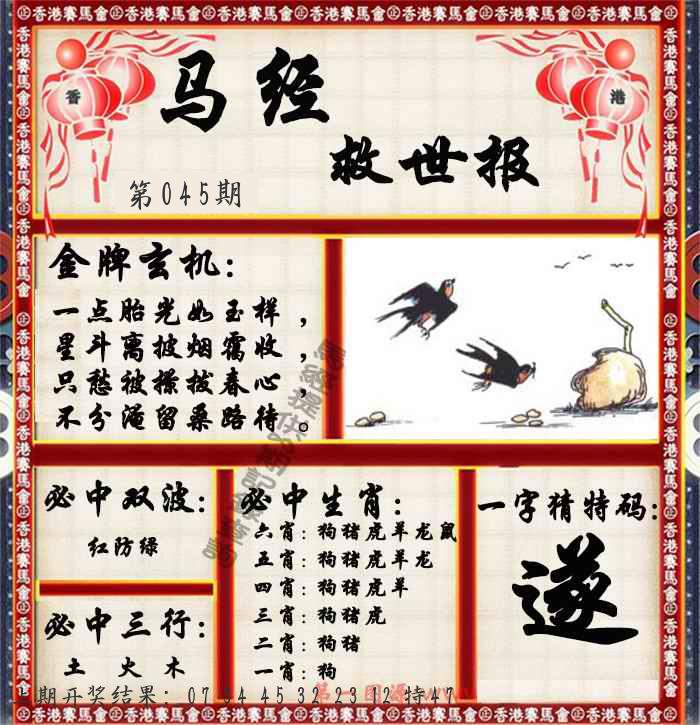 香港賽馬會
香 港
马经
救世报
第045期
金牌玄机：
一点胎光如玉样，
星斗离披烟霭收，
只愁被撩拔春心，
不分淹留桑路待。
必中双波：
红防绿
必中生肖：
六肖：狗猪虎羊龙鼠
五肖：狗猪虎羊龙
四肖：狗猪虎羊
三肖：狗猪虎
二肖：狗猪
一肖：狗
一字猜特码：
遂
必中三行：
土 火 木
期开奖结果：07 34 45 32 23 12 特47
第一图源